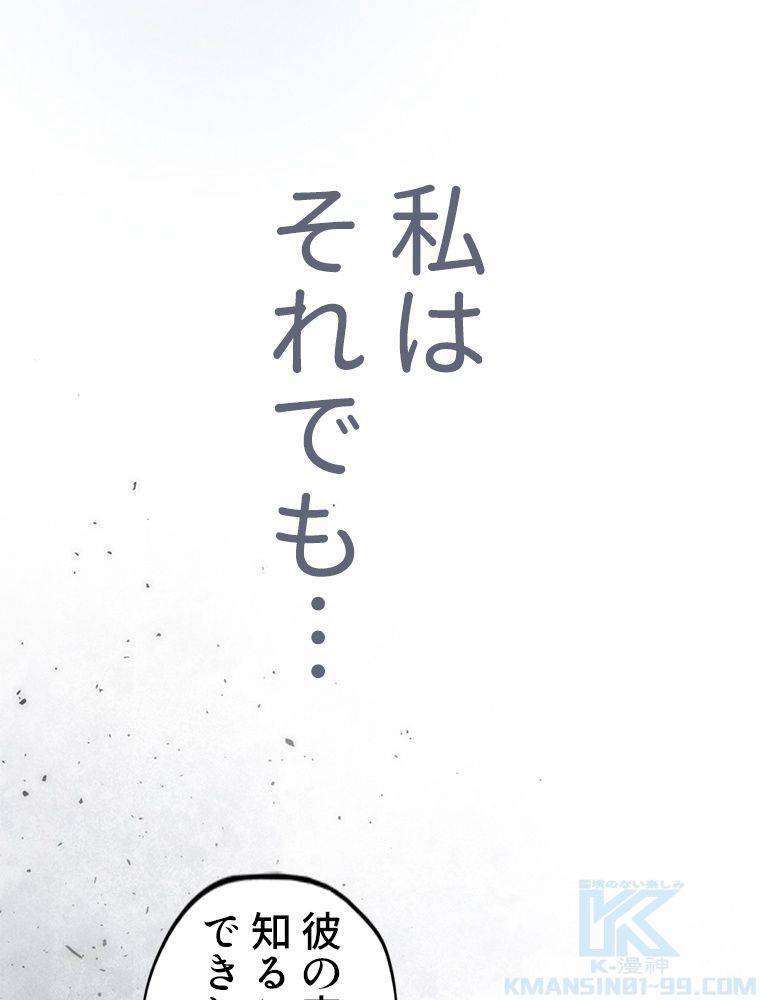 私は
それでも…
彼の
知る
でき
国境のない楽しみ
K-漫神
KMANSIN01-99.COM